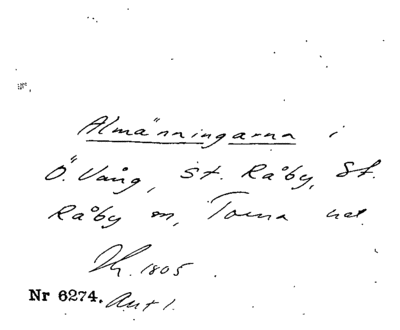 Almänningarna i
Ö. Vång, St. Råby, St.
Råby sn, Torna hd.
1805.
Nr 6274. Avt 1.